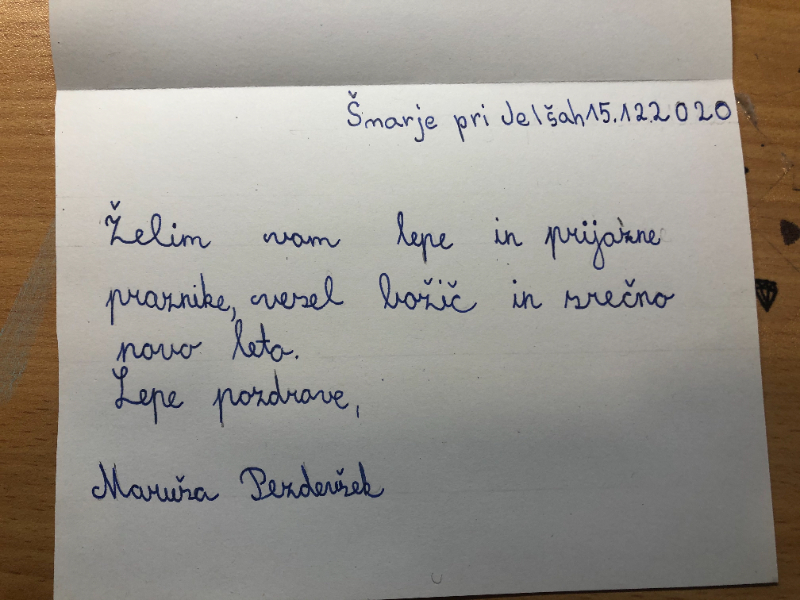 Šmarje pri Jelšah 15.12.2020
Želim vam lepe in prijazne
praznike, vesel božič in srečno
novo leto.
Lepe pozdrave,
Maruša Pezdevšek